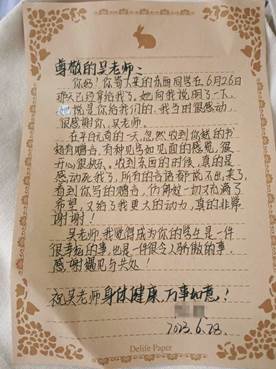 尊敬的吴老师：
你好！你寄下来的东西同学在6月26日
那天已经拿给我了。她向我说明了一下，
说是你给我们的，我当时很感动，
很感谢你，吴老师。
在平凡无奇的一天，忽然收到你赵的书
籍有赠言，有种见写如见面的感觉，很
开心很快乐。收到东西的时候，真的是
感动死我了，所有的言语都说不出来了，
看到你写的赠言，仿佛这一切又充满了
希望，又给了我更大的动力，真的非常
谢谢！
吴老师，我觉得成为你的学生是一件
很幸运的事，也是一件很令人骄傲的事，
感谢遇见
祝吴老师身体健康，万事如意！
2023.6.28.
Delife Paper